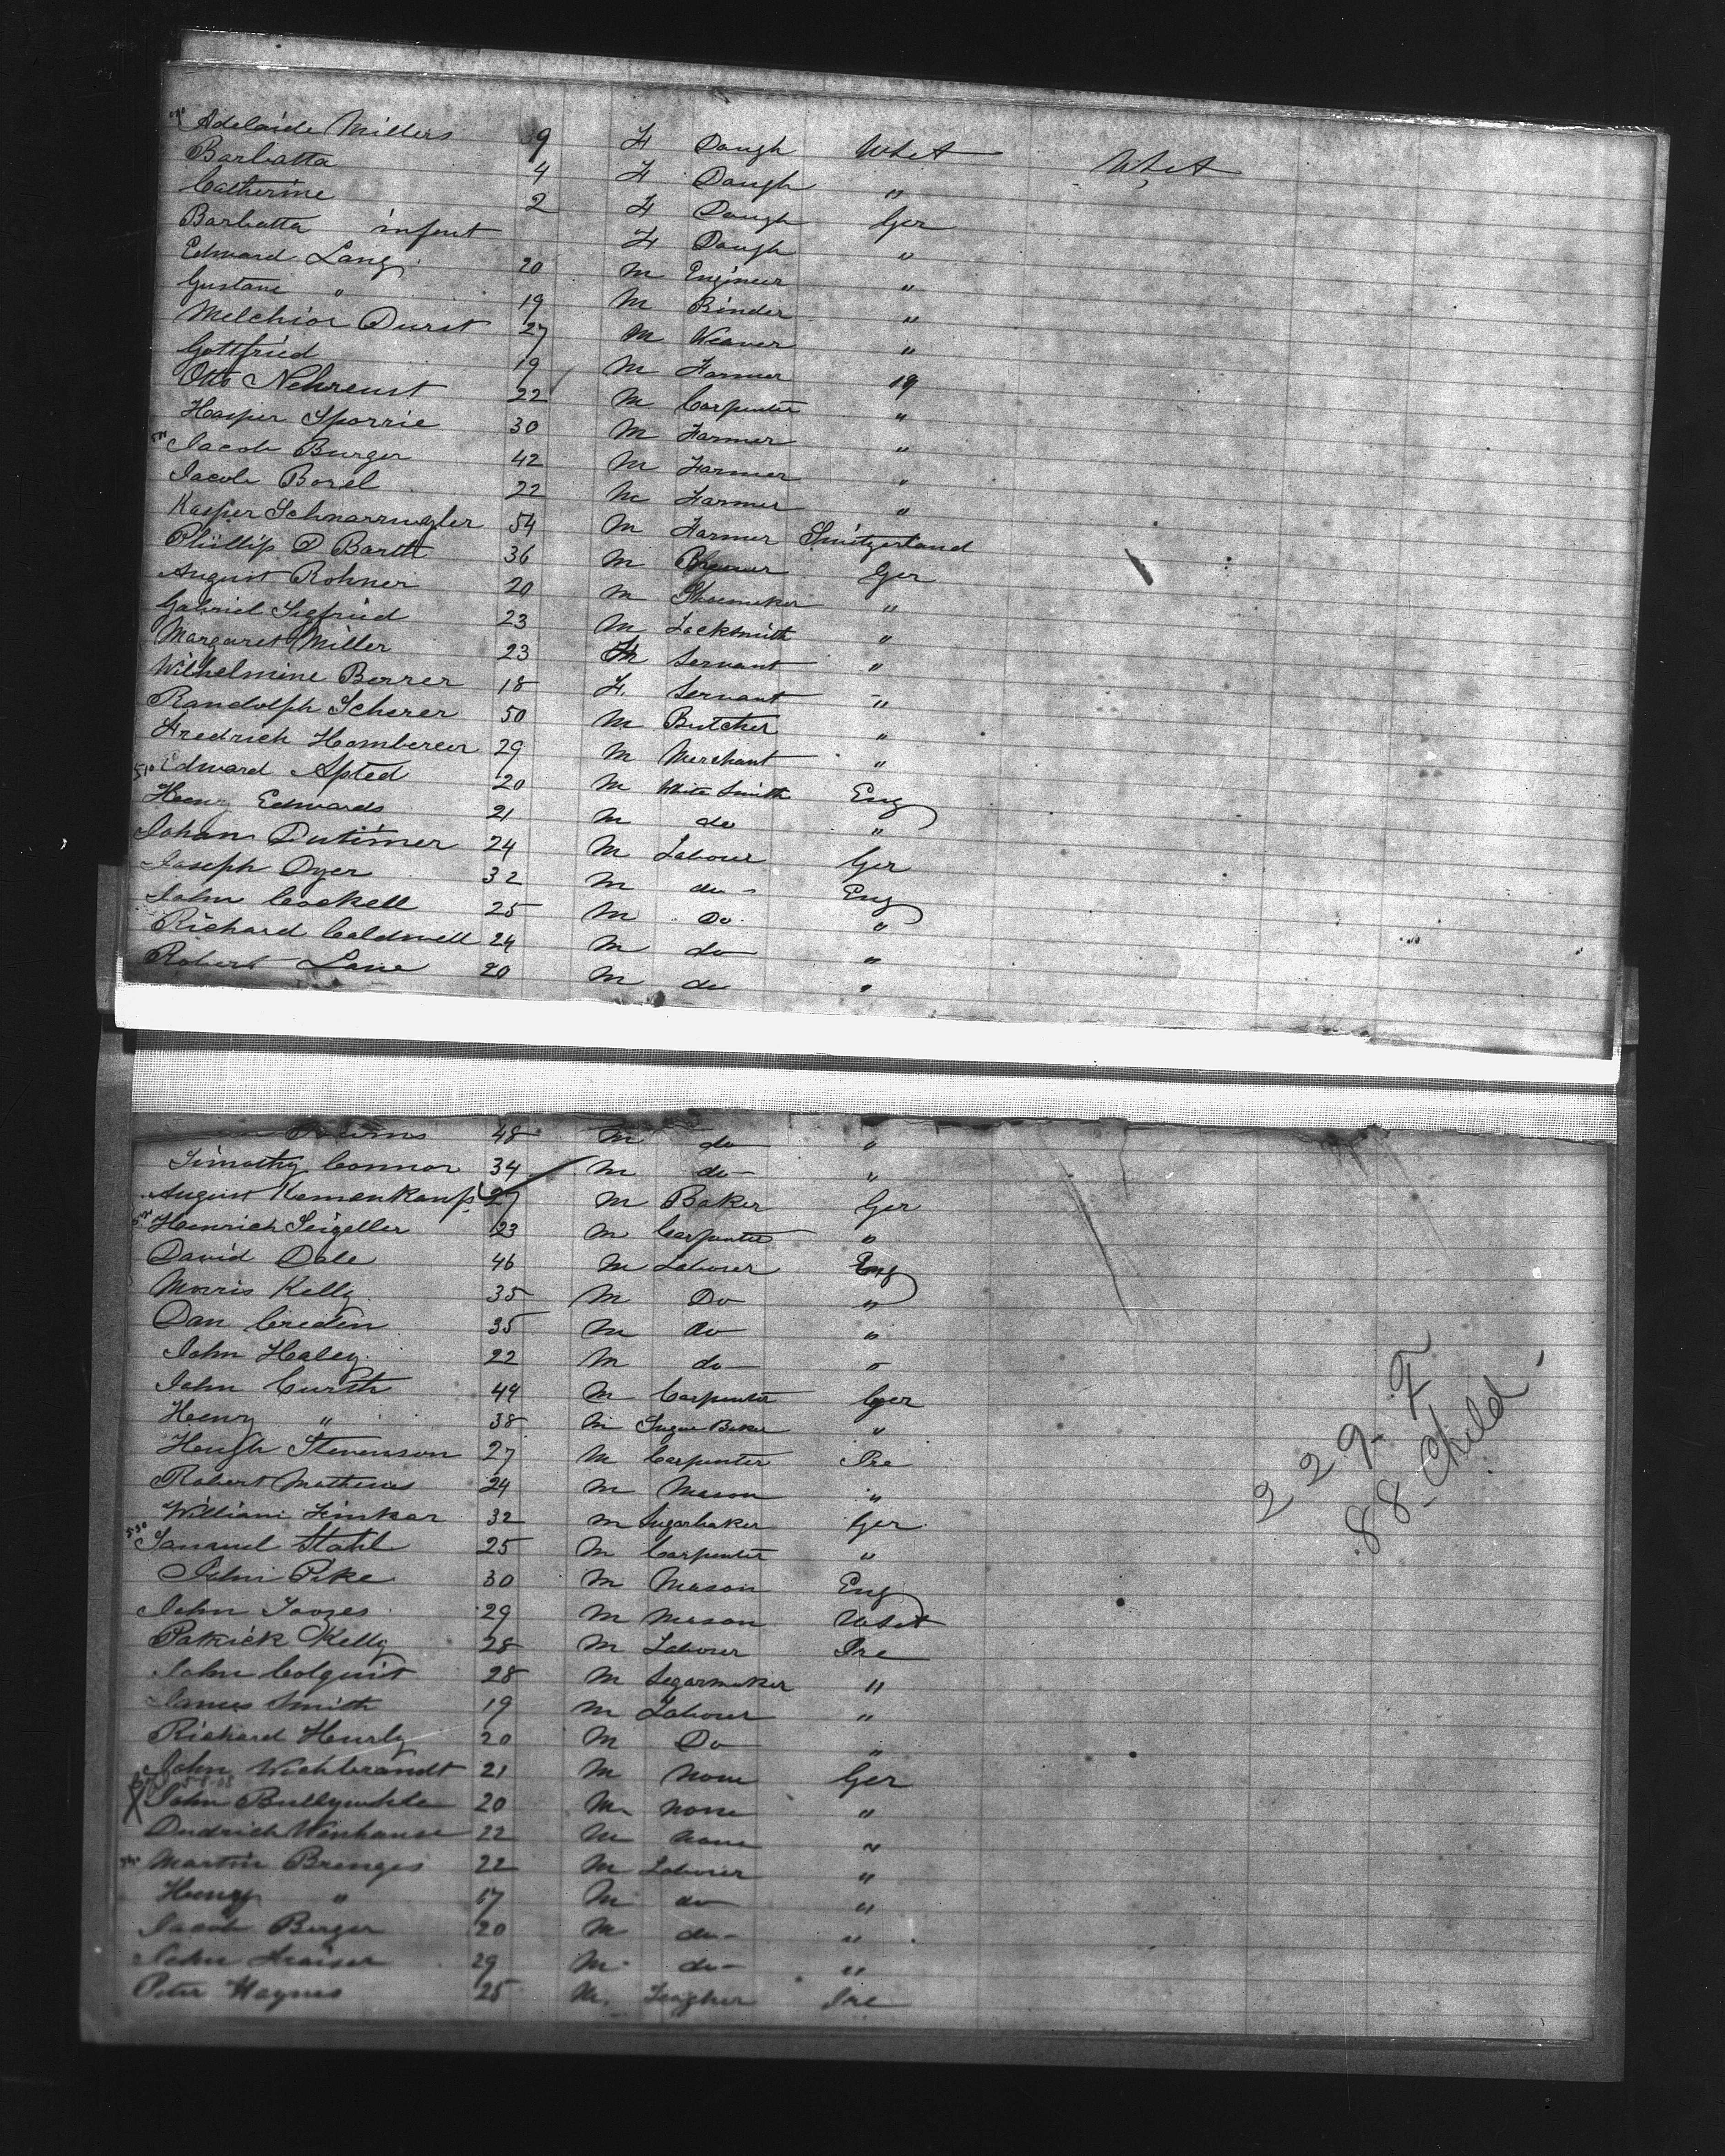 Adelaide Millers 9 F Daugh USt USt
Barbatta 4 F Daugh "
Catherine 2 F Daugh Ger
Barbatta infent F Daugh "
Edward Lang 20 M Engineer "
Gustave " 19 M Binder "
Melchior Durst 27 M Weaver "
Gottfried 19 M Farmer 19
Otto Nehreust 22 M Carpenter "
Hasper Sporrie 30 M Farmer "
Jacob Burger 42 M Farmer "
Jacob Borel 22 M Farmer "
Kasper 54 M Farmer Switzerland
Phillip D Barth 36 M Ger
August Rohner 20 M Shoemaker "
Gabriel Sigfried 23 M Locksmith "
Margaret Miller 23 Servant "
Wilhelmine Borrer 18 F. Servant "
Randolph Scherer 50 M Butcher "
Fredrich Hombercer 29 M Merchant "
510 Edward Apted 20 M White Smith Eng
Henry Edwards 21 M do "
Johan Dutimer 24 M Labour Ger
Joseph Dyer 32 M do - Eng
John Cockell 25 M Do "
Richard Caldwell 24 M do "
Robert Lane 20 M do "
48 M do "
Timothy Connor 34 M do "
August Kamenkamp 27 M Baker Ger
Heinrich Seigeller 23 M Carpenter "
David Dale 46 M Laborer Eng
Morris Kelly 35 M Do "
Dan Creden 35 M do "
John Haley 22 M do "
John Curth 44 M Carpenter Ger
Henry " 38 M Sugar Baker "
Hough Stevenson 27 M Carpenter Ire
Robert Mathews 24 M Mason "
William Finkar 32 M Sugarbaker Ger
530 Samuel Stahl 25 M Carpenter "
John Pike 30 M Mason Eng
John 29 M Mason USt
Patrick Kelly 28 M Laborer Ire
John Colquit 28 M Segarmaker "
James Smith 19 M Labour "
Richard Hurly 20 M Do "
John Wichbrandt 21 M None Ger
John 20 M none "
22 M none "
Martin Brenges 22 M Laborer "
Henry " 17 M do "
Jacob Berger 20 M do - "
John 29 M do - "
Peter Haynes 25 M. Ire
229- F
88- Child